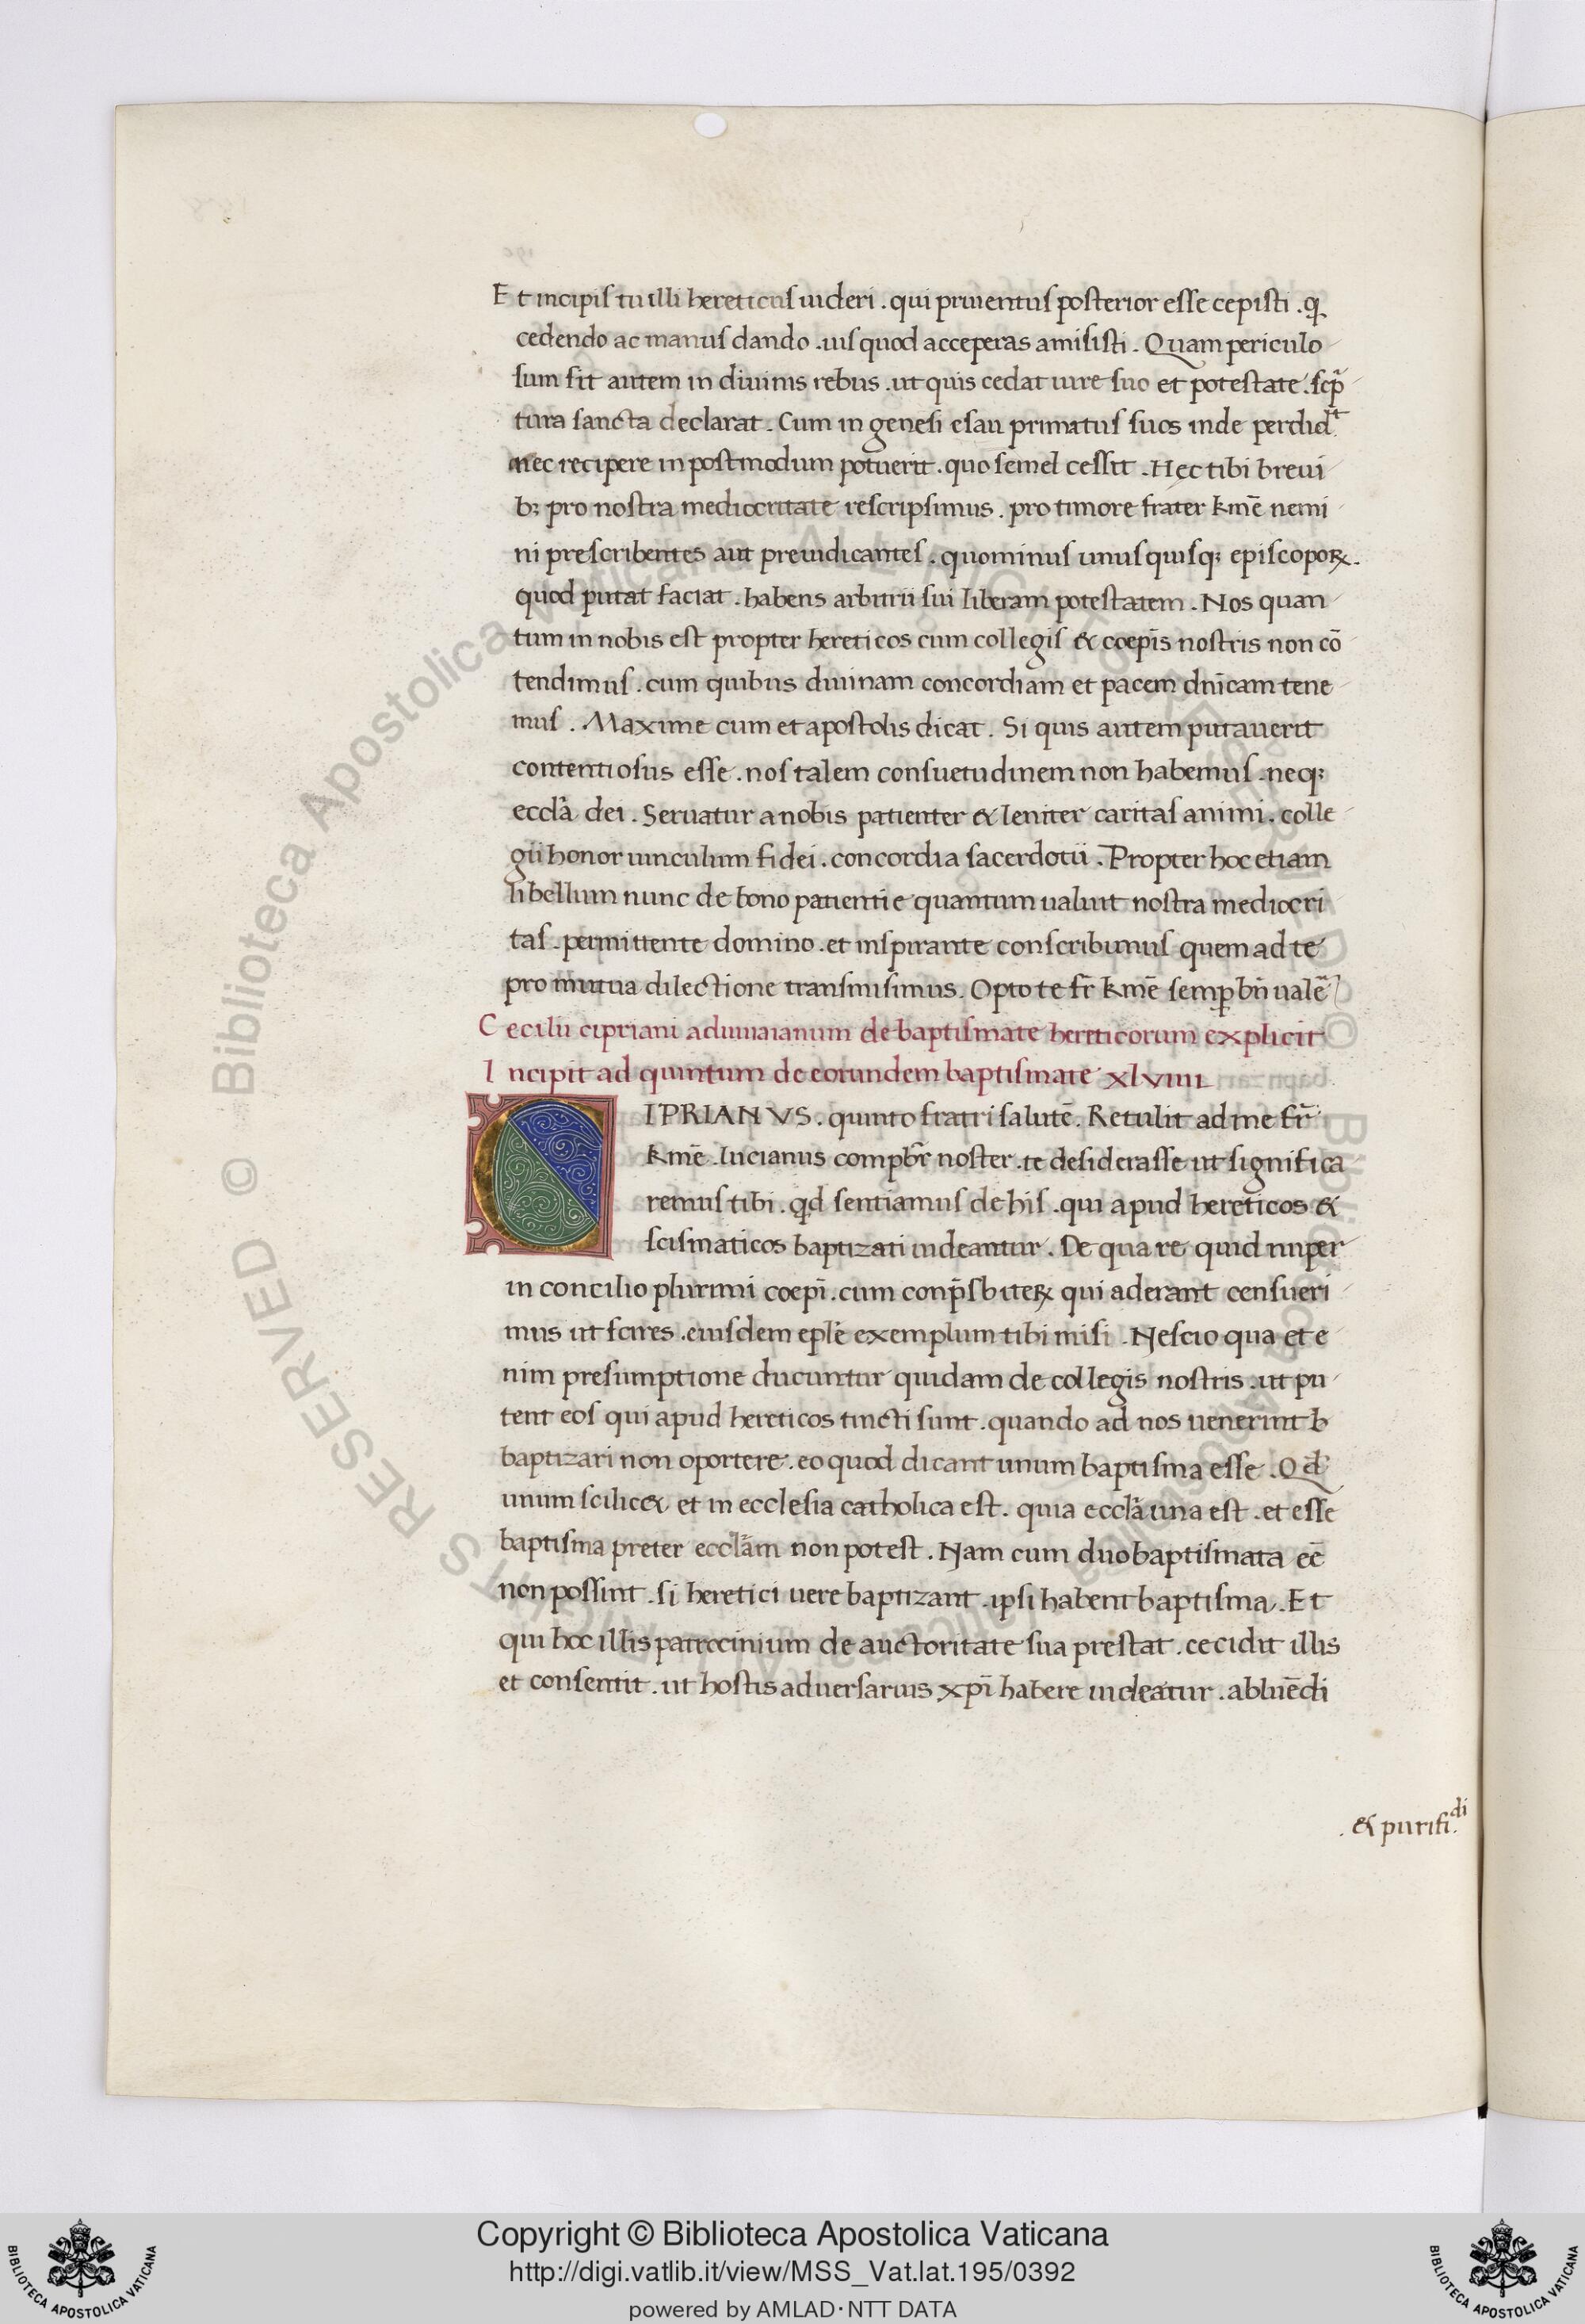 Et incipis tu illi hereticus uideri . qui priuentus posterior esse cepisti . q
cedendo ac manus dando . ius quod acceperas amisisti . Quam periculo
sum sit autem in diuinis rebus . ut quis cedat iure suo et potestate . scp̃
tura sancta declarat . Cum in genesi esau primatus suos inde perdidᵗ.
nec recipere in postmodum potuerit . quo semel cessit . Hec tibi breui
b; pro nostra mediocritate rescripsimus . pro timore frater kmē nemi
ni prescribentes aut preiudicantes . quominus unusquisq; episcopoꝝ .
quod putat faciat . habens arbitrii sui liberam potestatem . Nos quan
tum in nobis est propter hereticos cum collegis & coepīs nostris non cō
tendimus . cum quibus diuinam concordiam et pacem dnīcam tene
mus . Maxime cum et apostolis dicat . Si quis autem putauerit
contentiosus esse . nos talem consuetudinem non habemus . neq;
ecclā dei . Seruatur a nobis patienter & leniter caritas animi . colle
gii honor uinculum fidei . concordia sacerdotii . Propter hoc etiam
libellum nunc de bono patientie quantum ualuit nostra mediocri
tas . permittente domino . et inspirante conscribimus quem ad te
pro mutua dilectione transmisimus . Opto te fr̄ kmē semꝑ bn̄ ualē
Cecilii cipriani ad iuuaianum de baptismate hereticorum explicit
Incipit ad quintum de eorundem baptismate xlviiii
CIPRIANVS . quinto fratri salutē . Retulit ad me fr̄
kmē . lucianus compbr̄ noster . te desiderasse ut significa
remus tibi . qd sentiamus de his . qui apud hereticos &
scismaticos baptizati uideantur . De qua re quid nuper
in concilio plurimi coepī . cum conp̄sbiteꝝ qui aderant censueri
mus ut scires . eiusdem eplē exemplum tibi misi . Nescio qua et e
nim presumptione ducuntur quidam de collegis nostris . ut pu
tent eos qui apud hereticos tincti sunt . quando ad nos uenerint b
baptizari non oportere . eo quod dicant unum baptisma esse . Qd̄
unum scilic& et in ecclesia catholica est . quia ecclā una est . et esse
baptisma preter ecclām non potest . Nam cum duo baptismata eē
non possint . si heretici uere baptizant . ipsi habent baptisma . Et
qui hoc illis patrocinium de auctoritate sua prestat . cecidit illis
et consentit . ut hostis aduersarius xpī habere uideatur . abluēdi
. & purifi.ᵈⁱ
© Biblioteca Apostolica Vaticana ALL RIGHTS RESERVED © Biblioteca Apostolica Vaticana ALL RIGHTS RESERVED
Copyright © Biblioteca Apostolica Vaticana
http://digi.vatlib.it/view/MSS_Vat.lat.195/0392
powered by AMLAD·NTT DATA
BIBLIOTECA APOSTOLICA VATICANA
BIBLIOTECA APOSTOLICA VATICANA